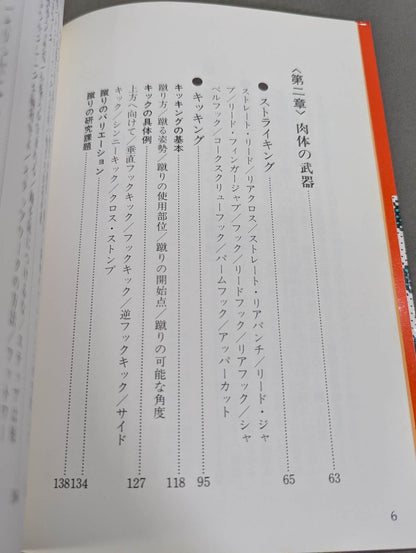 〈第二章〉肉体の武器……63
●ストライキング……65
ストレート・リード／リアクロス／ストレート・リアパンチ／リード・ジャ
ブ／リード・フィンガージャブ／フック／リードフック／リアフック／シャ
ベルフック／コークスクリューフック／パームフック／アッパーカット
●キッキング……95
キッキングの基本……118
蹴り方／蹴る姿勢／蹴りの使用部位／蹴りの開始点／蹴りの可能な角度
キックの具体例……127
上方へ向けて／垂直フックキック／フックキック／逆フックキック／サイド
キック／シンニーキック／クロス・ストンプ
蹴りのバリエーション……134
蹴りの研究課題……138
6